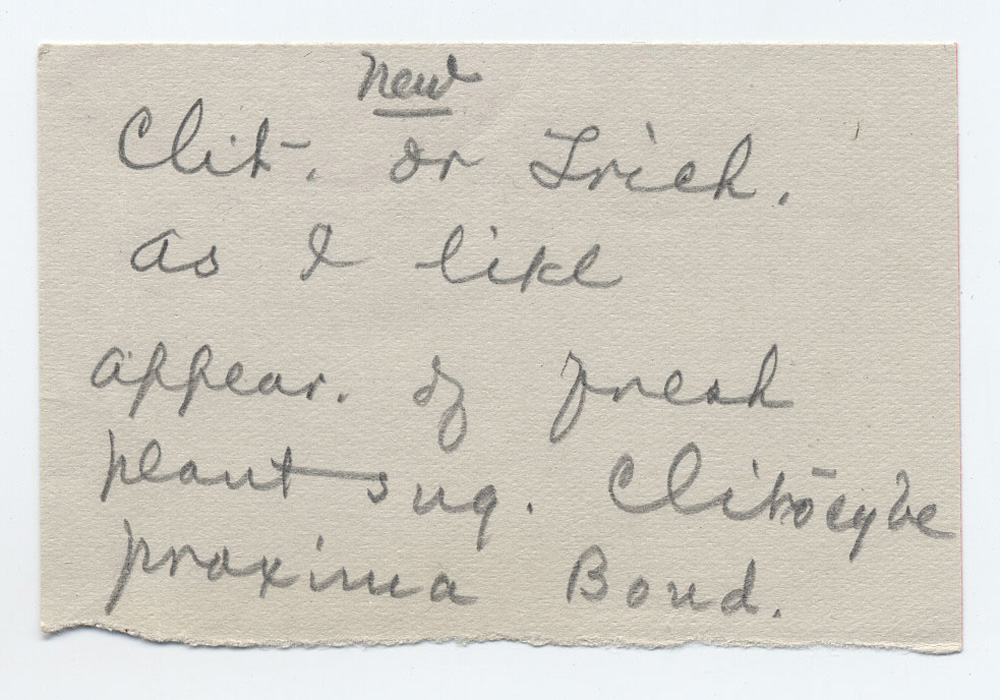 new
Clit. or Trich.
as I like
appear. of fresh
plant sug. Clitocybe
proxima Boud.